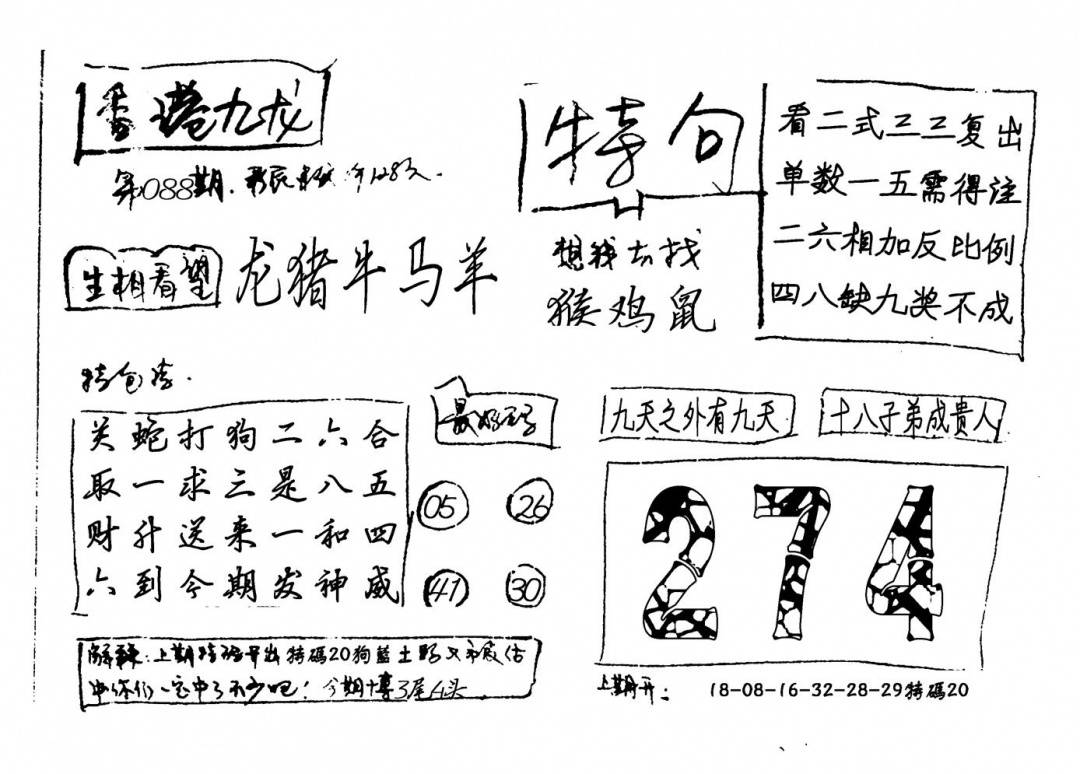 香港九龙
第088期.
生相看望
龙猪牛马羊
特句
想钱去找
猴鸡鼠
看二式三三复出
单数一五需得注
二六相加反比例
四八缺九奖不成
特包者.
关蛇打狗二六合
取一求三是八五
财升送来一和四
六到今期发神威
05 26
41 30
九天之外有九天
十八子弟成贵人
274
上期特码开出特碼20狗蓝土
中你们一定中了不少吧！今期博3尾4头
上期开：18-08-16-32-28-29特碼20